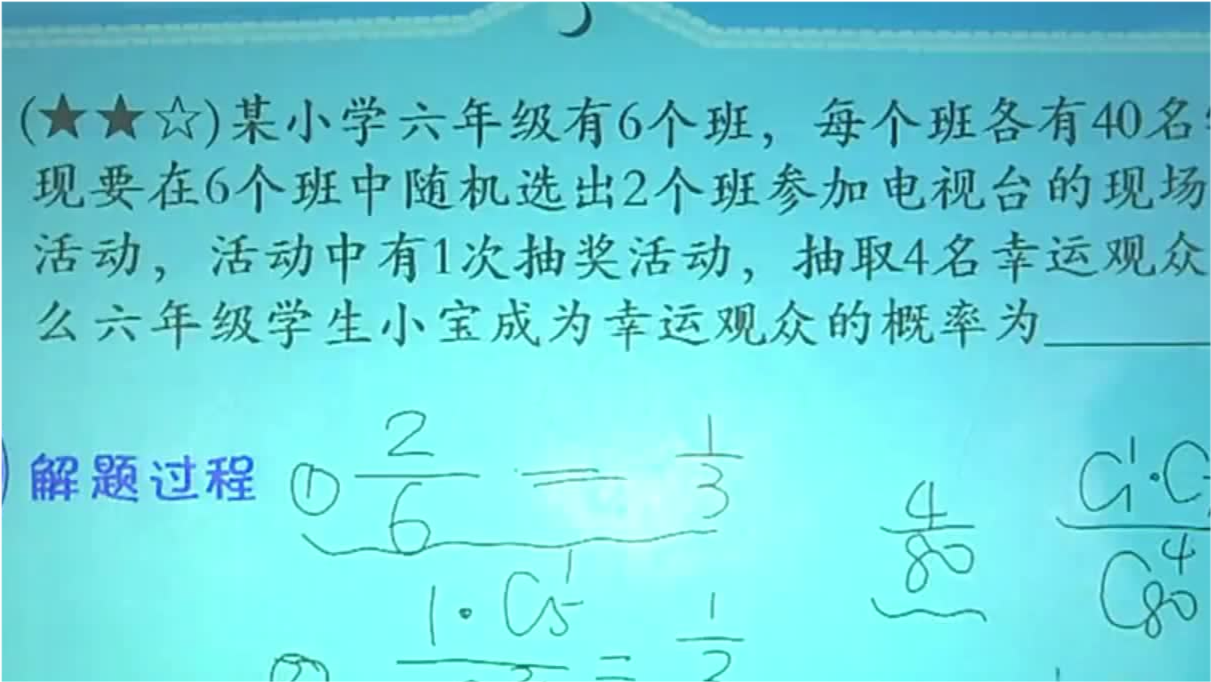 (★★☆)某小学六年级有6个班，每个班各有40名
现要在6个班中随机选出2个班参加电视台的现场
活动，活动中有1次抽奖活动，抽取4名幸运观众
么六年级学生小宝成为幸运观众的概率为
解题过程 ① 2/6 = 1/3
4/80
C₁¹·C
C₈₀⁴
1·C₅¹